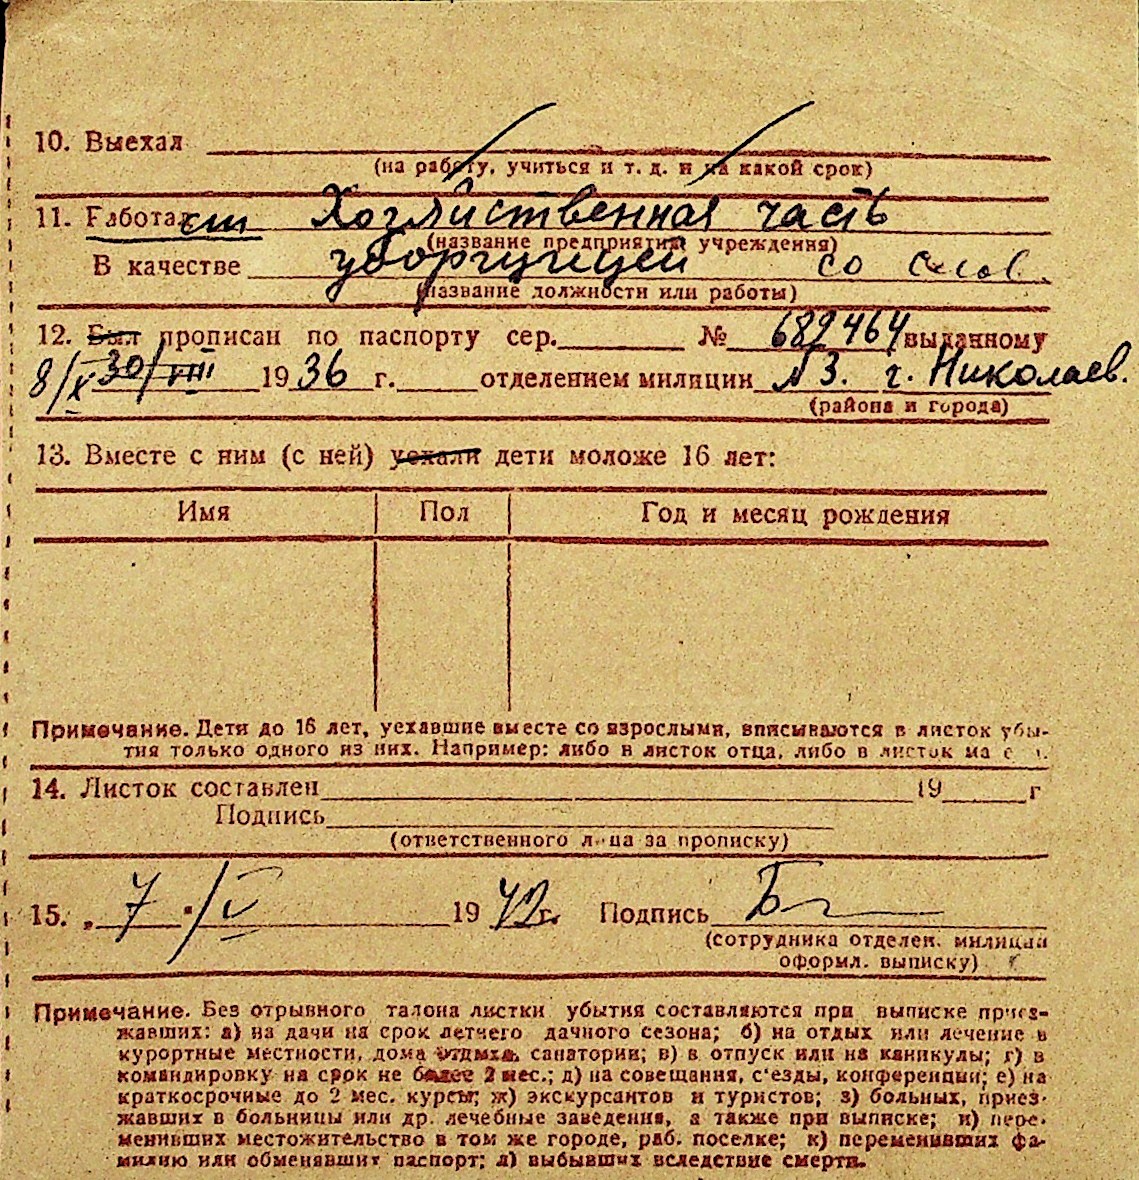 10. Выехал
(на работу, учиться и т. д. и на какой срок)
11. Работает Хозяйственная часть
(название предприятия, учреждения)
В качестве уборщицей со слов.
(название должности или работы)
12. Был прописан по паспорту сер. № 689464 выданному
8/X 30/VIII 1936 г. отделением милиции № 3. г. Николаев.
(района и города)
13. Вместе с ним (с ней) уехали дети моложе 16 лет:
Имя Пол Год и месяц рождения
Примечание. Дети до 16 лет, уехавшие вместе со взрослыми, вписываются в листок убы-
тия только одного из них. Например: либо в листок отца, либо в листок
14. Листок составлен 19 г
Подпись
(ответственного лица за прописку)
15. „7"/V 1942 г. Подпись
(сотрудника отделен. милиции
оформл. выписку)
Примечание. Без отрывного талона листки убытия составляются при выписке приез-
жавших: а) на дачи на срок летнего дачного сезона; б) на отдых или лечение в
курортные местности, дома отдыха, санатории; в) в отпуск или на каникулы; г) в
командировку на срок не более 2 мес.; д) на совещания, с'езды, конференции; е) на
краткосрочные до 2 мес. курсы; ж) экскурсантов и туристов; з) больных, приез-
жавших в больницы или др. лечебные заведения, а также при выписке; и) пере-
менивших местожительство в том же городе, раб. поселке; к) переменивших фа-
милию или обменявших паспорт; л) выбывших вследствие смерти.